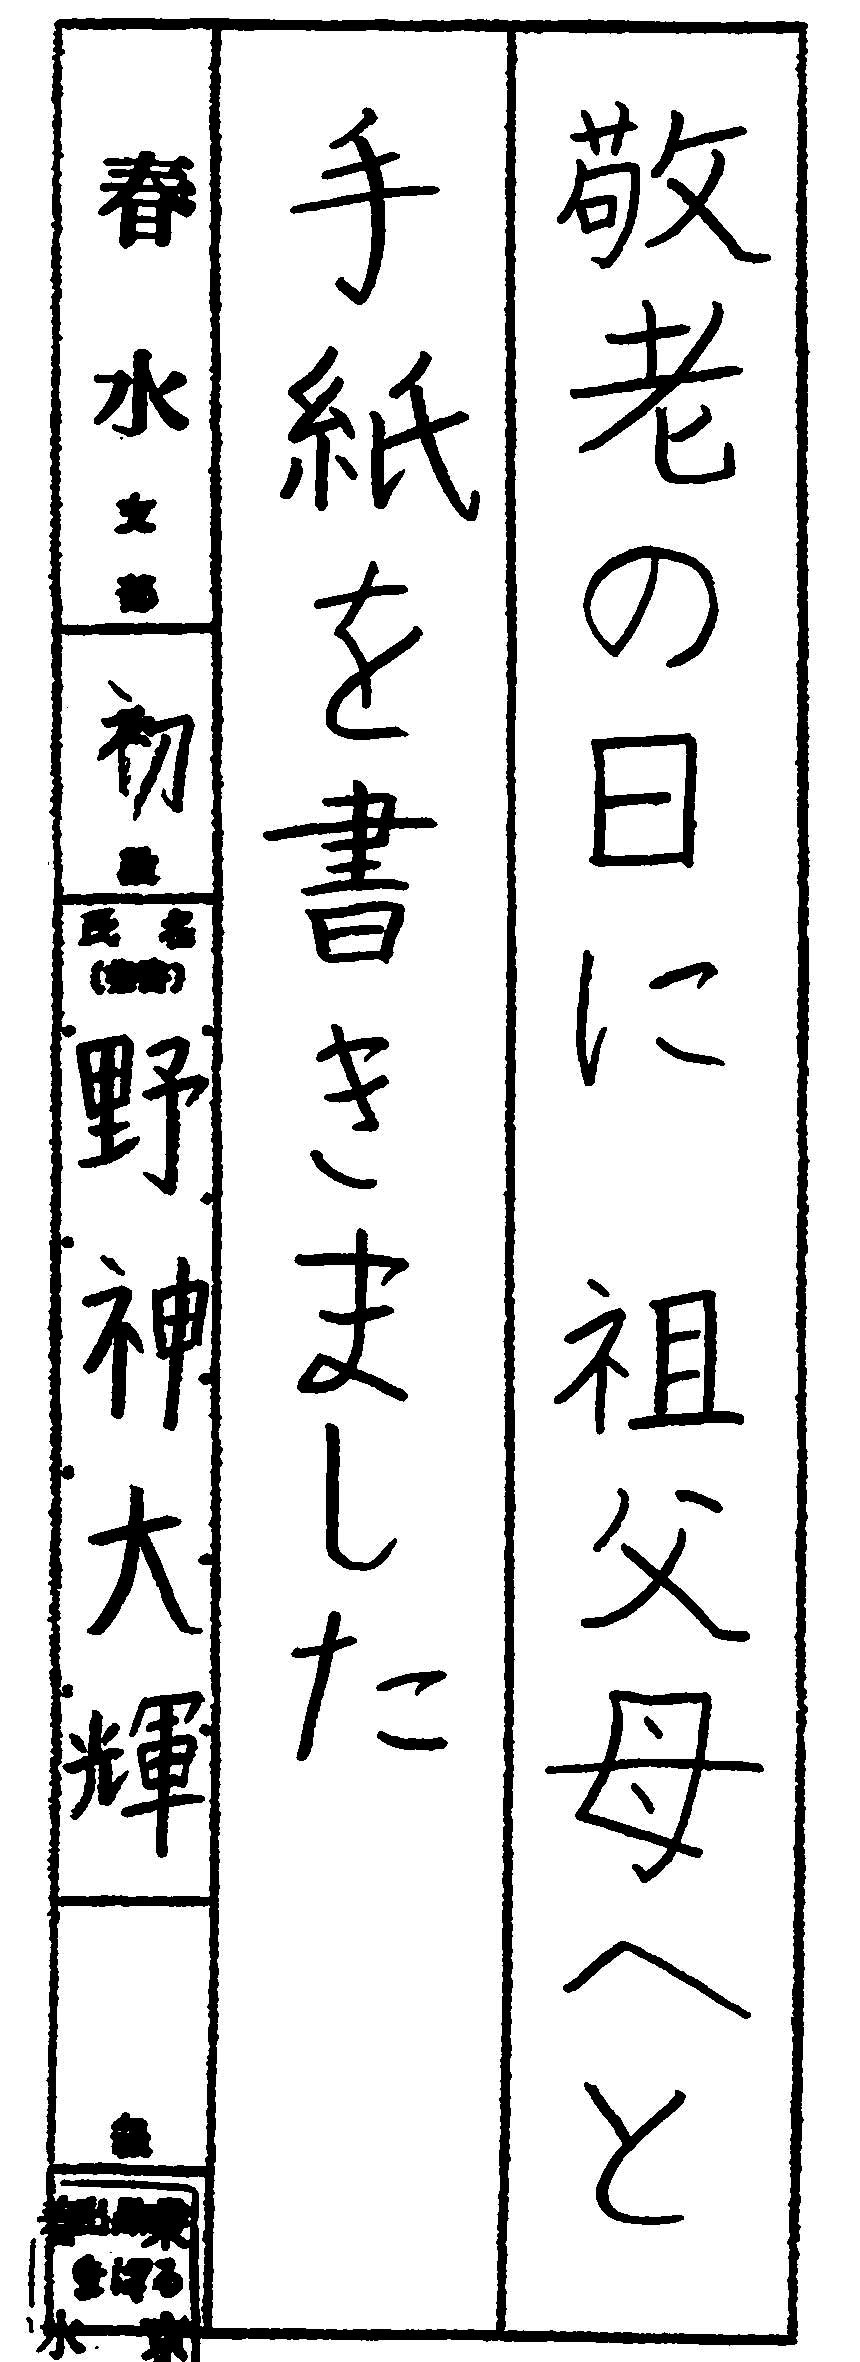 敬老の日に　祖父母へと
手紙を書きました
春水支部
初段
氏名
野神大輝
級